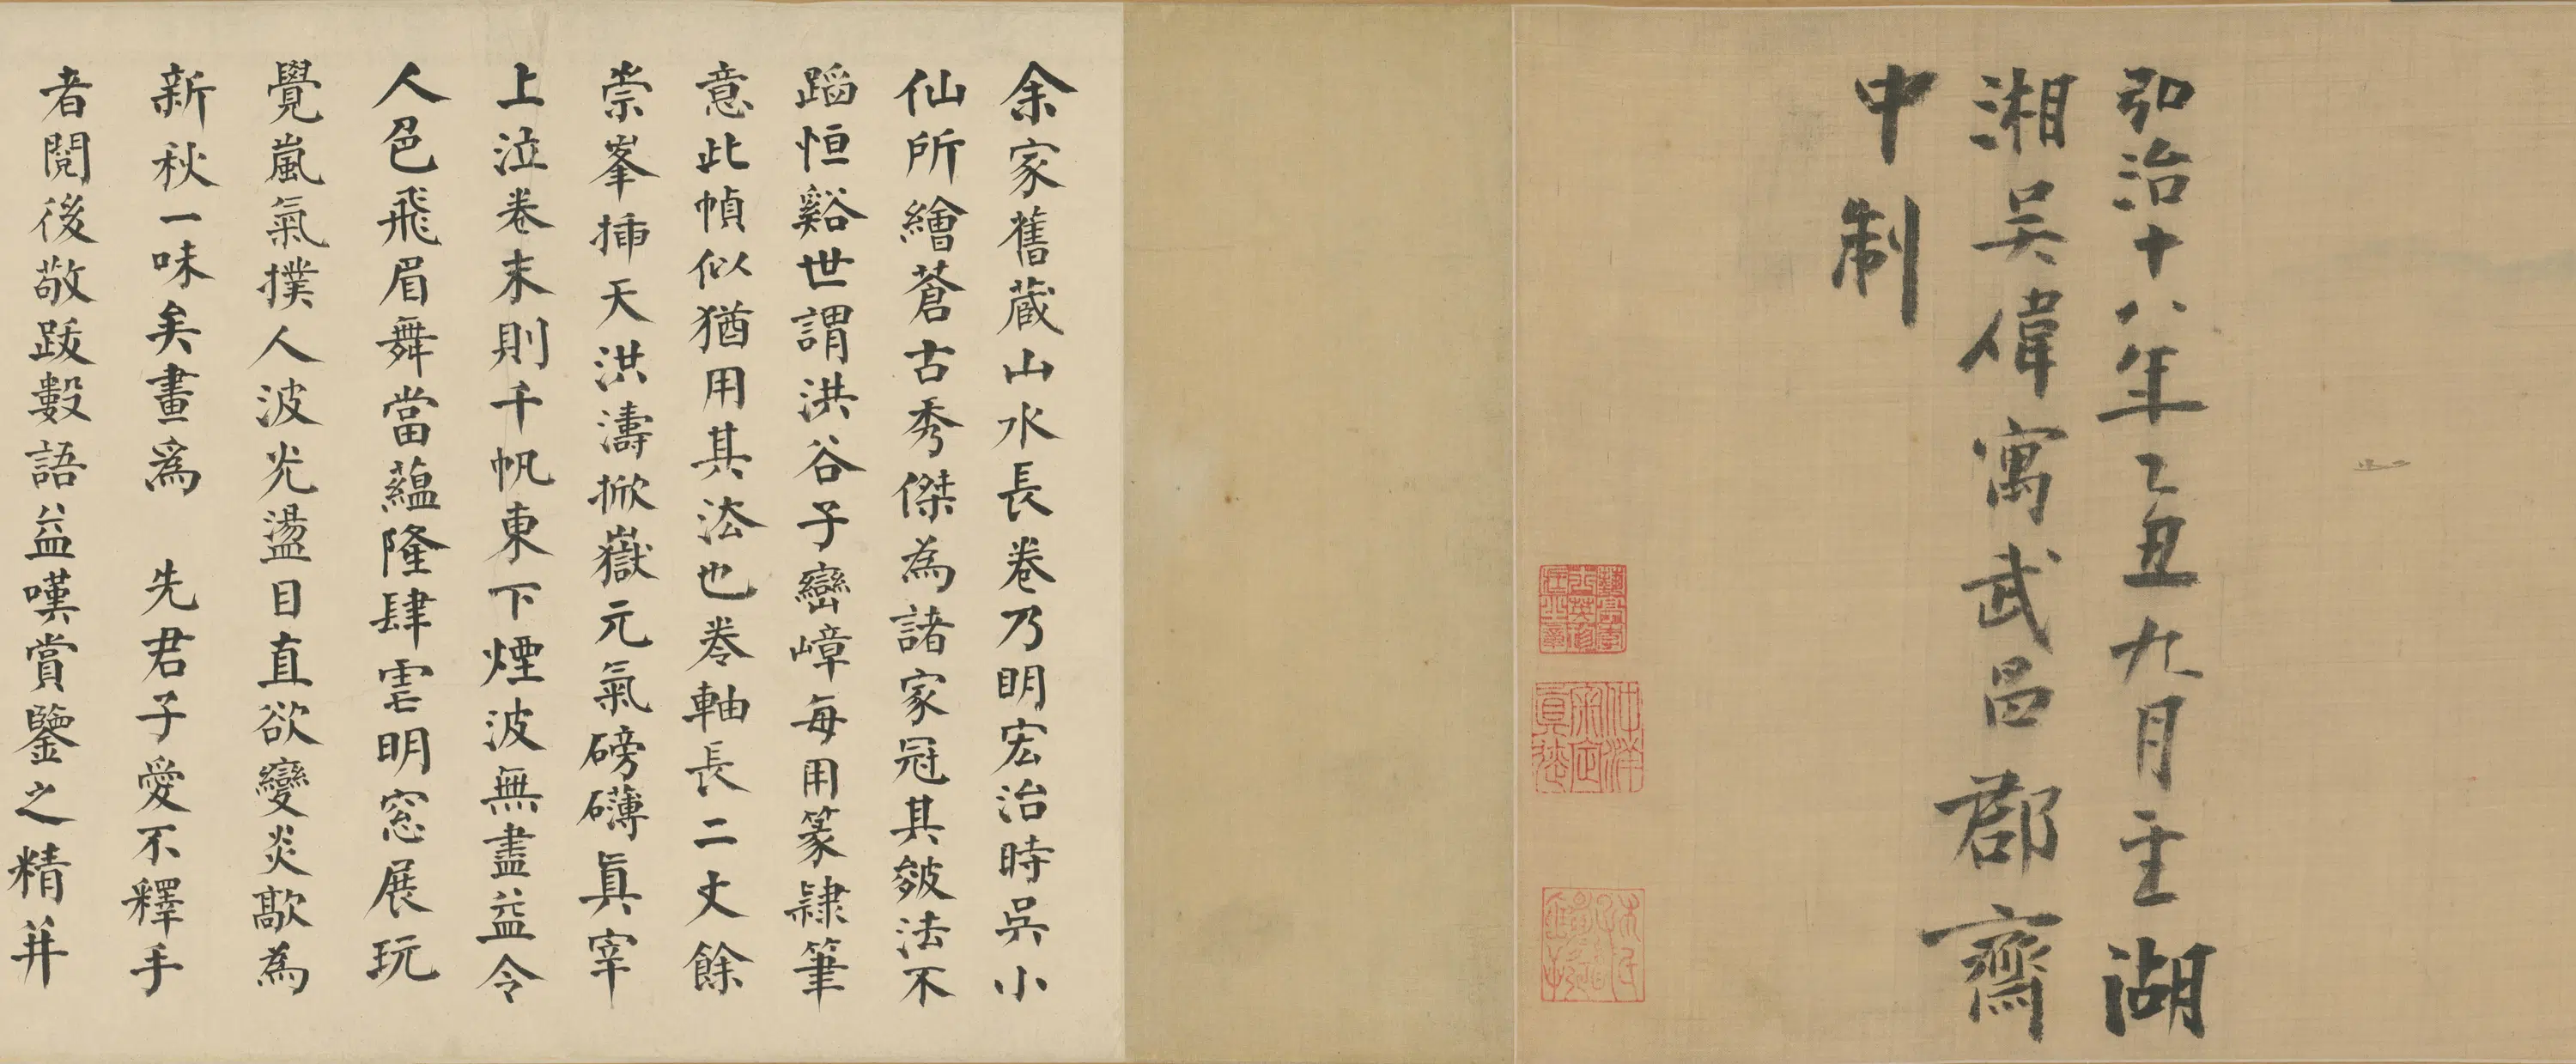 弘治十八年乙丑九月望湖
湘吴偉寓武昌郡齋
中制
余家舊蔵山水長卷乃明宏治時吳小
仙所繪蒼古秀傑為諸家冠其皴法不
蹈恒谿世謂洪谷子巒嶂每用篆隸筆
意此幀似猶用其法也卷軸長二丈餘
崇峯揷天洪濤掀嶽元氣磅礴真宰
上泣卷末則千帆東下煙波無盡益令
人色飛眉舞當蘊隆肆虐明窓展玩
覺嵐氣撲人波光盪目直欲變炎歊為
新秋一味矣畫爲　先君子愛不釋手
者閱後敬跋數語益嘆賞鑒之精并